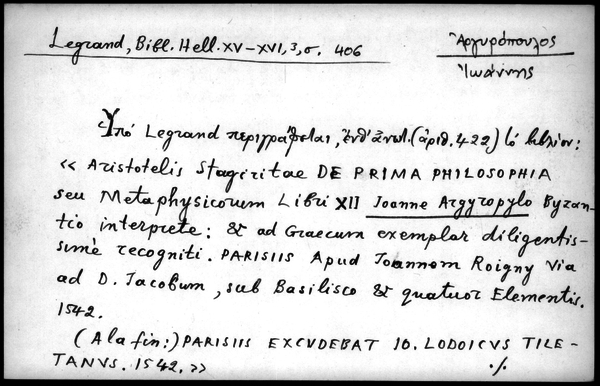 Legrand, Bibl. Hell. XV-XVI, 3, σ. 406
Ἀργυρόπουλος
Ἰωάννης
Ὑπό Legrand περιγράφεται, ἔνθ' ἀνωτ. (ἀριθ. 422) τό βιβλίον:
« Aristotelis Stagiritae DE PRIMA PHILOSOPHIA
seu Metaphysicorum Libri XII Joanne Argyropylo Byzan-
tio interprete: & ad Graecum exemplar diligentis-
simè recogniti. PARISIIS Apud Joannem Roigny via
ad D. Jacobum, sub Basilisco & quatuor Elementis.
1542.
(A la fin:) PARISIIS EXCVDEBAT IO. LODOICVS TILE-
TANVS. 1542. »
./.